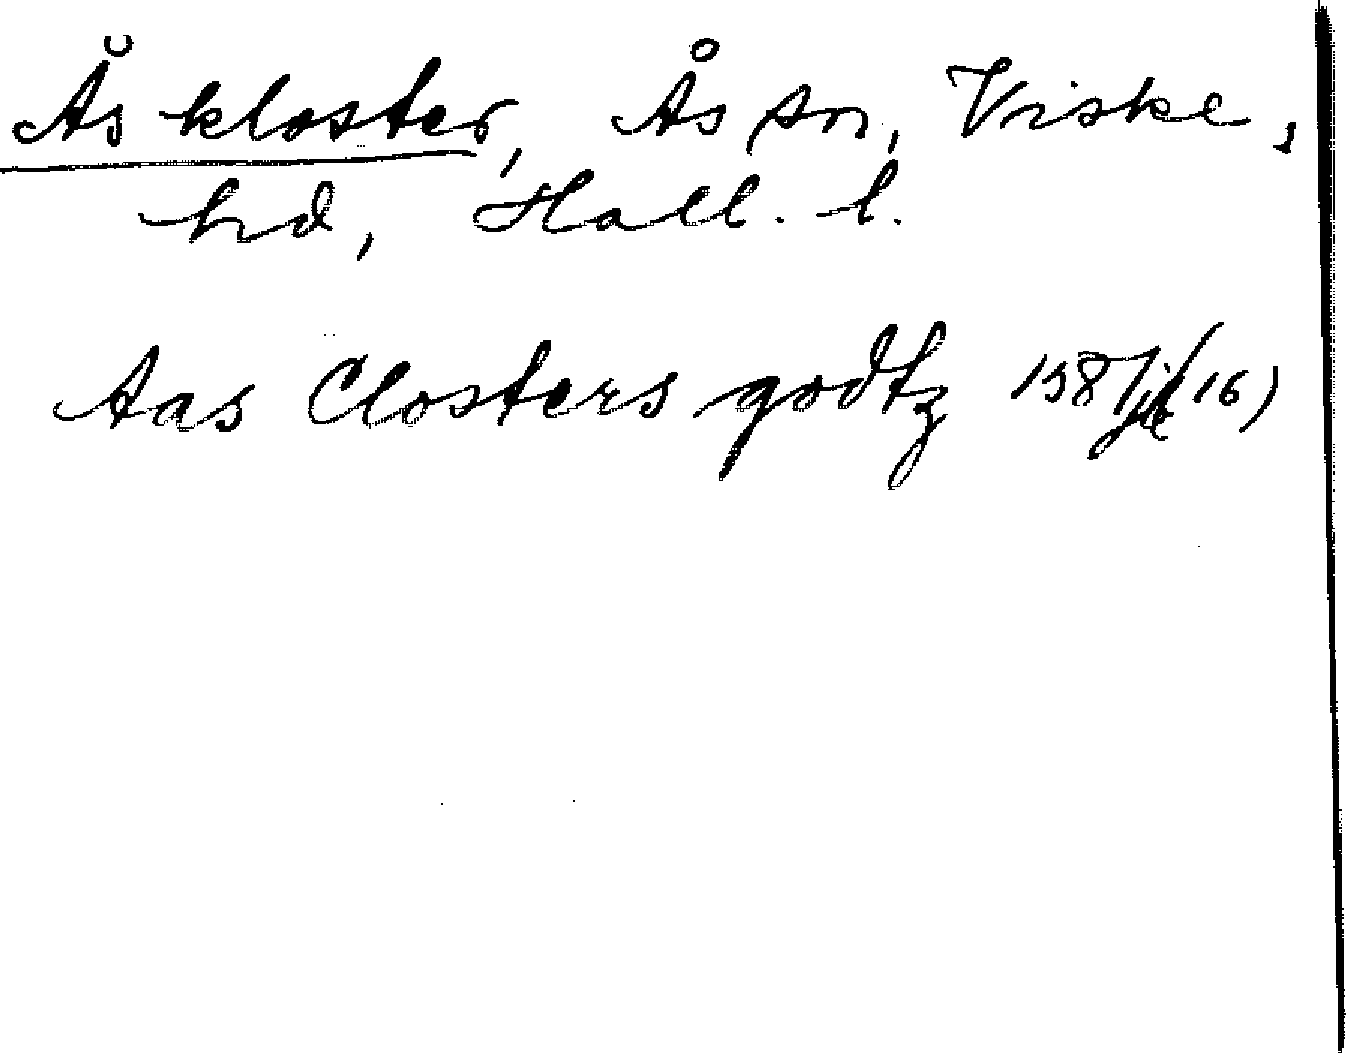 Ås kloster, Ås sn, Viske,
hd, Hall. l.
Aas Closters godtz 1587 (16)